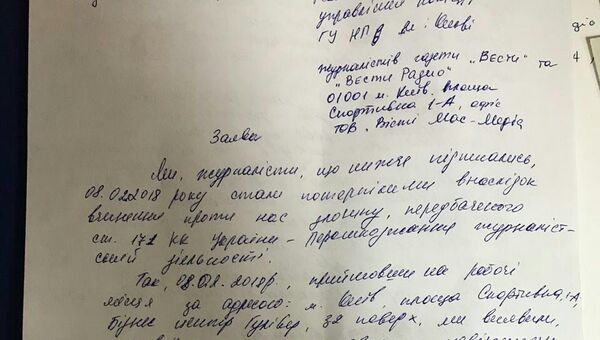 управління поліції
ГУ НПУ в м. Києві
журналістів газети "Вести" та
"Вести Радио"
01001 м. Київ. площа
Спортивна 1-А, офіс
ТОВ "Вісті Мас-Медіа
Заява
Ми, журналісти, що нижче підписались,
08.02.2018 року стали потерпілими внаслідок
вчинення проти нас злочину, передбаченого
ст. 171 КК України - Перешкоджання журналіст-
ській діяльності.
Так, 08.02.2018р., прийшовши на робочі
місця за адресою: м. Київ, площа Спортивна, 1-А,
Бізнес центр Гулівер, поверх, ми виявили,